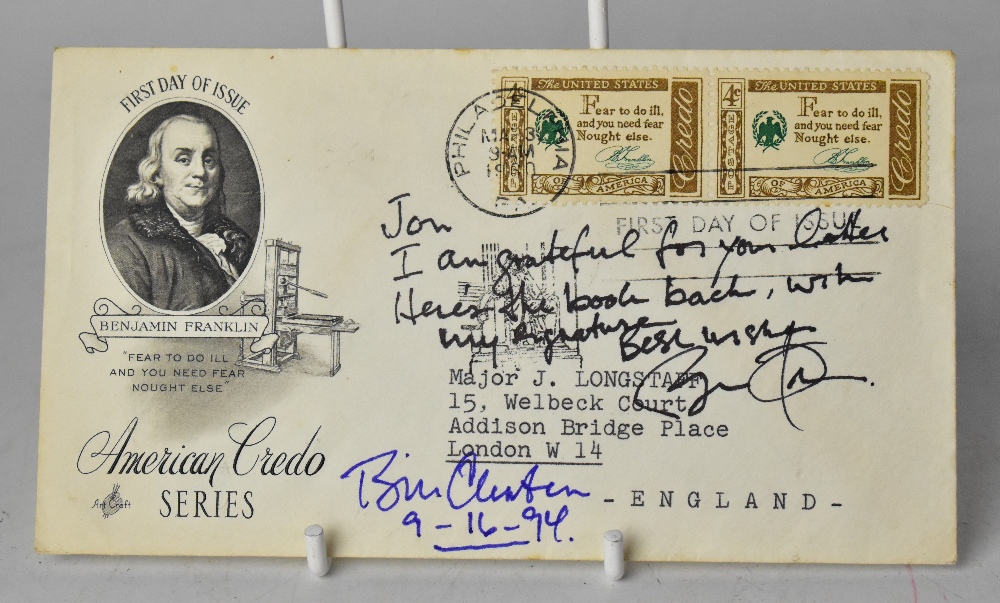 FIRST DAY OF ISSUE
BENJAMIN FRANKLIN
"FEAR TO DO ILL
AND YOU NEED FEAR
NOUGHT ELSE"
American Credo
SERIES
Art Craft
PHILADELPHIA
MAR 31
9 AM
1960
PA
The UNITED STATES
4¢
POSTAGE
Fear to do ill,
and you need fear
Nought else.
B Franklin
OF AMERICA
Credo
The UNITED STATES
4¢
POSTAGE
Fear to do ill,
and you need fear
Nought else.
B Franklin
OF AMERICA
Credo
FIRST DAY OF ISSUE
Jon
I am grateful for your letter
Here's the book back, with
my signature
Best wishes
Major J. LONGSTAFF
15, Welbeck Court
Addison Bridge Place
London W 14
- ENGLAND -
Bill Clinton
9-16-94.